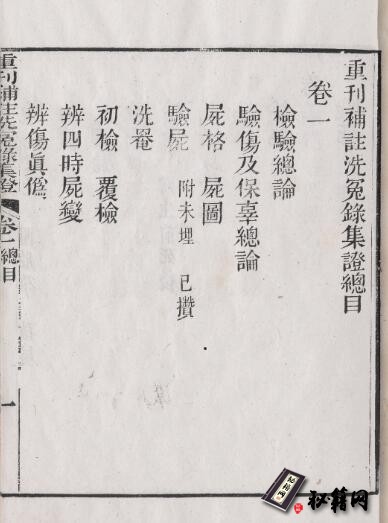 重刊補註洗冤錄集證總目
卷一
檢驗總論
驗傷及保辜總論
屍格 屍圖
驗屍 附未埋 已攢
洗罨
初檢 覆檢
辨四時屍變
辨傷眞僞
重刊補註洗冤錄集證 卷一總目 一
秘籍网